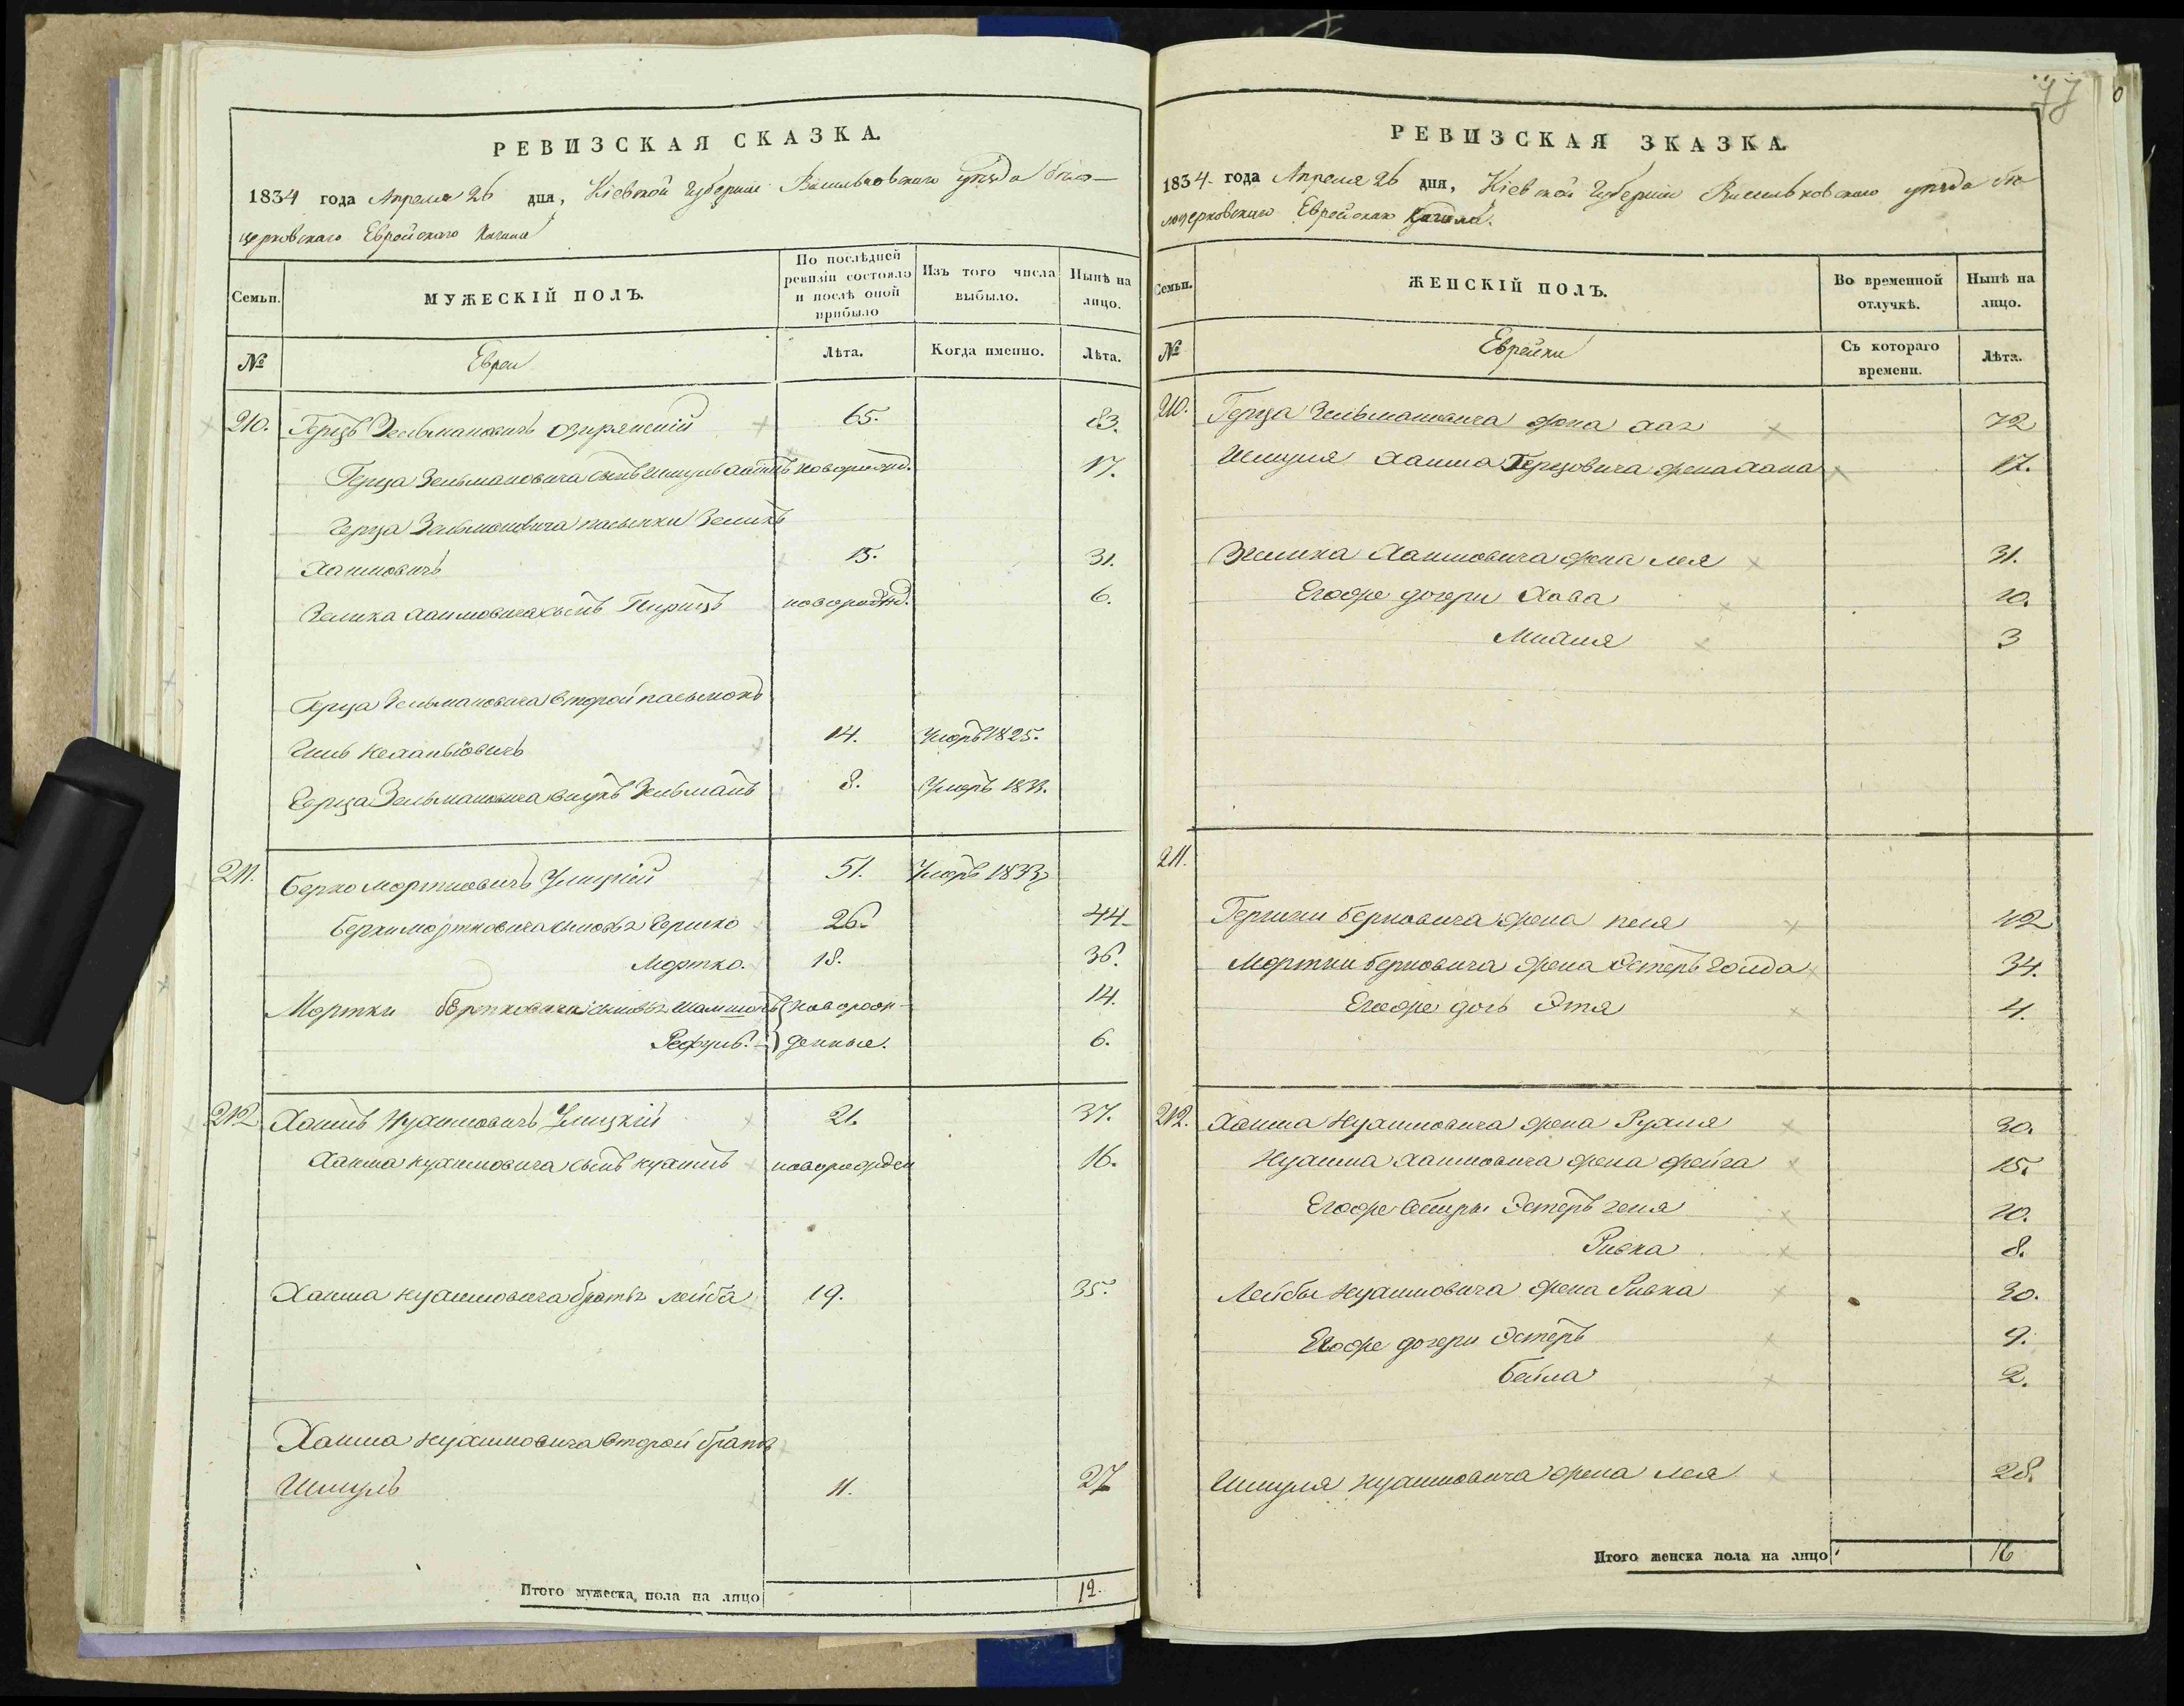 77
РЕВИЗСКАЯ СКАЗКА.
1834 года Апреля 26 дня, Кіевской Губерніи Васильковскаго уѣзда Бѣло-
церковскаго Еврейскаго Кагала
Семьи.
МУЖЕСКІЙ ПОЛЪ.
По послѣдней ревизіи состояло и послѣ оной прибыло
Изъ того числа выбыло.
Нынѣ на лицо.
№
Евреи
Лѣта.
Когда именно.
Лѣта.
210. Герцъ Зельмановичъ 65. 83.
Герца Зельмановича сынъ Шмуль Хаимъ новорожд. 17.
Герца Зельмановича пасынки Зеликъ
Хаимовичъ 15. 31.
Зелика Хаимовича сынъ Пирицъ новорожд. 6.
Герца Зельмановича второй пасынокъ
14. Умеръ 1825.
Герца Зельмановича внукъ Зельманъ 8. Умеръ
211. Берко Мортковичъ Улицкій 51. Умеръ 1833
Берки Мортковича сыновья Гершко 26. 44
Мортко. 18. 36.
Мортки Берковича сыновья новорож- 14.
Рефуль. денные. 6.
212 Хаимъ Нухимовичъ Улицкій 21. 37.
Хаима Нухимовича сынъ Нухимъ новорожден 16.
Хаима Нухимовича братья Лейба 19. 35.
Хаима Нухимовича второй братъ
Шмуль 11. 27
Итого мужеска пола на лицо 12.
РЕВИЗСКАЯ ЗКАЗКА.
1834 года Апреля 26 дня, Кіевской Губерніи Васильковскаго уѣзда Бѣ-
лоцерковскаго Еврейскаго Кагала.
Семьи.
ЖЕНСКІЙ ПОЛЪ.
Во временной отлучкѣ.
Нынѣ на лицо.
№
Еврейки
Съ котораго времени.
Лѣта.
210. Герца Зельмановича жена 72
Шмуля Хаима Герцовича жена Хана 17.
Зелика Хаимовича жена Лея 31.
Его же дочери Хава 10.
3
211.
Гершки Берковича жена 42
Мортки Берковича жена Эстеръ Голда 34.
Его же дочь Этя 4.
212. Хаима Нухимовича жена Рухля 30.
Нухима Хаимовича жена Фейга 15.
Его же сестры Эстеръ Геня 10.
Ривка 8.
Лейбы Нухимовича жена Ривка 30.
Его же дочери Эстеръ 9.
Бейла 2.
Шмуля Нухимовича жена Лея 28.
Итого женска пола на лицо 16